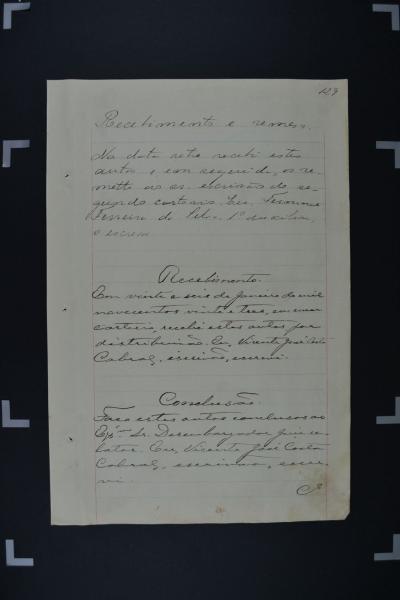 129
Recebimento e remessa.
Na data retro recebi estes
autos e em seguida, os re-
metto ao sr. escrivão do se-
gundo cartorio. Eu,
Ferreira da Silva, 1º auxiliar,
o escrevi
Recebimento.
Em vinte e seis de Janeiro de mil
novecentos vinte e tres, em meu
cartorio, recebi estes autos por
distribuição. Eu, Vicente José Costa
Cabral, escrivão, escrevi.
Conclusão.
Faço estes autos conclusos ao
Exmo. Sr. Desembargador Juiz re-
lator. Eu, Vicente José Costa
Cabral, escrivão, escre-
vi.